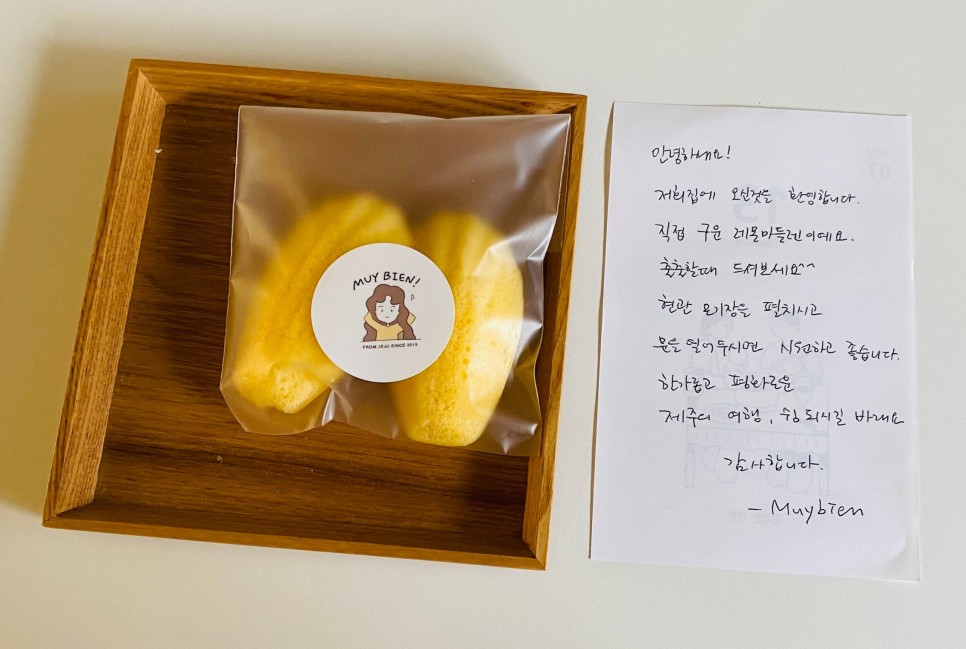 MUY BIEN!
FROM JEJU SINCE 2015
안녕하세요!
저희집에 오신것을 환영합니다.
직접 구운 레몬마들렌이에요.
출출할때 드셔보세요^^
현관 모기장을 펼치시고
문을 열어두시면 시원하고 좋습니다.
한가롭고 평화로운
제주의 여행, 쉼 되시길 바래요
감사합니다.
- Muybien